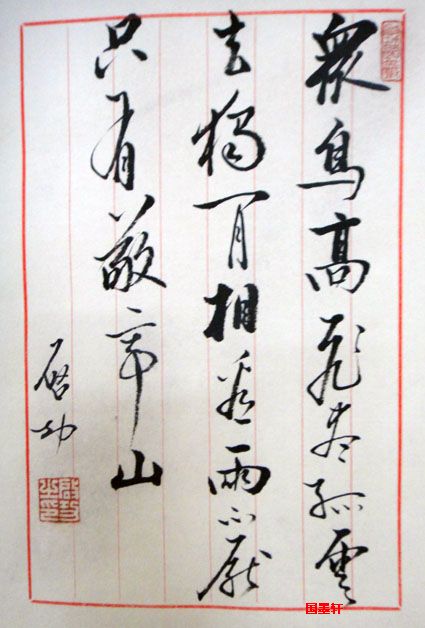 眾鳥高飛盡孤雲
去獨閒相看兩不厭
只有敬亭山
啓功
啓功之印
国墨轩